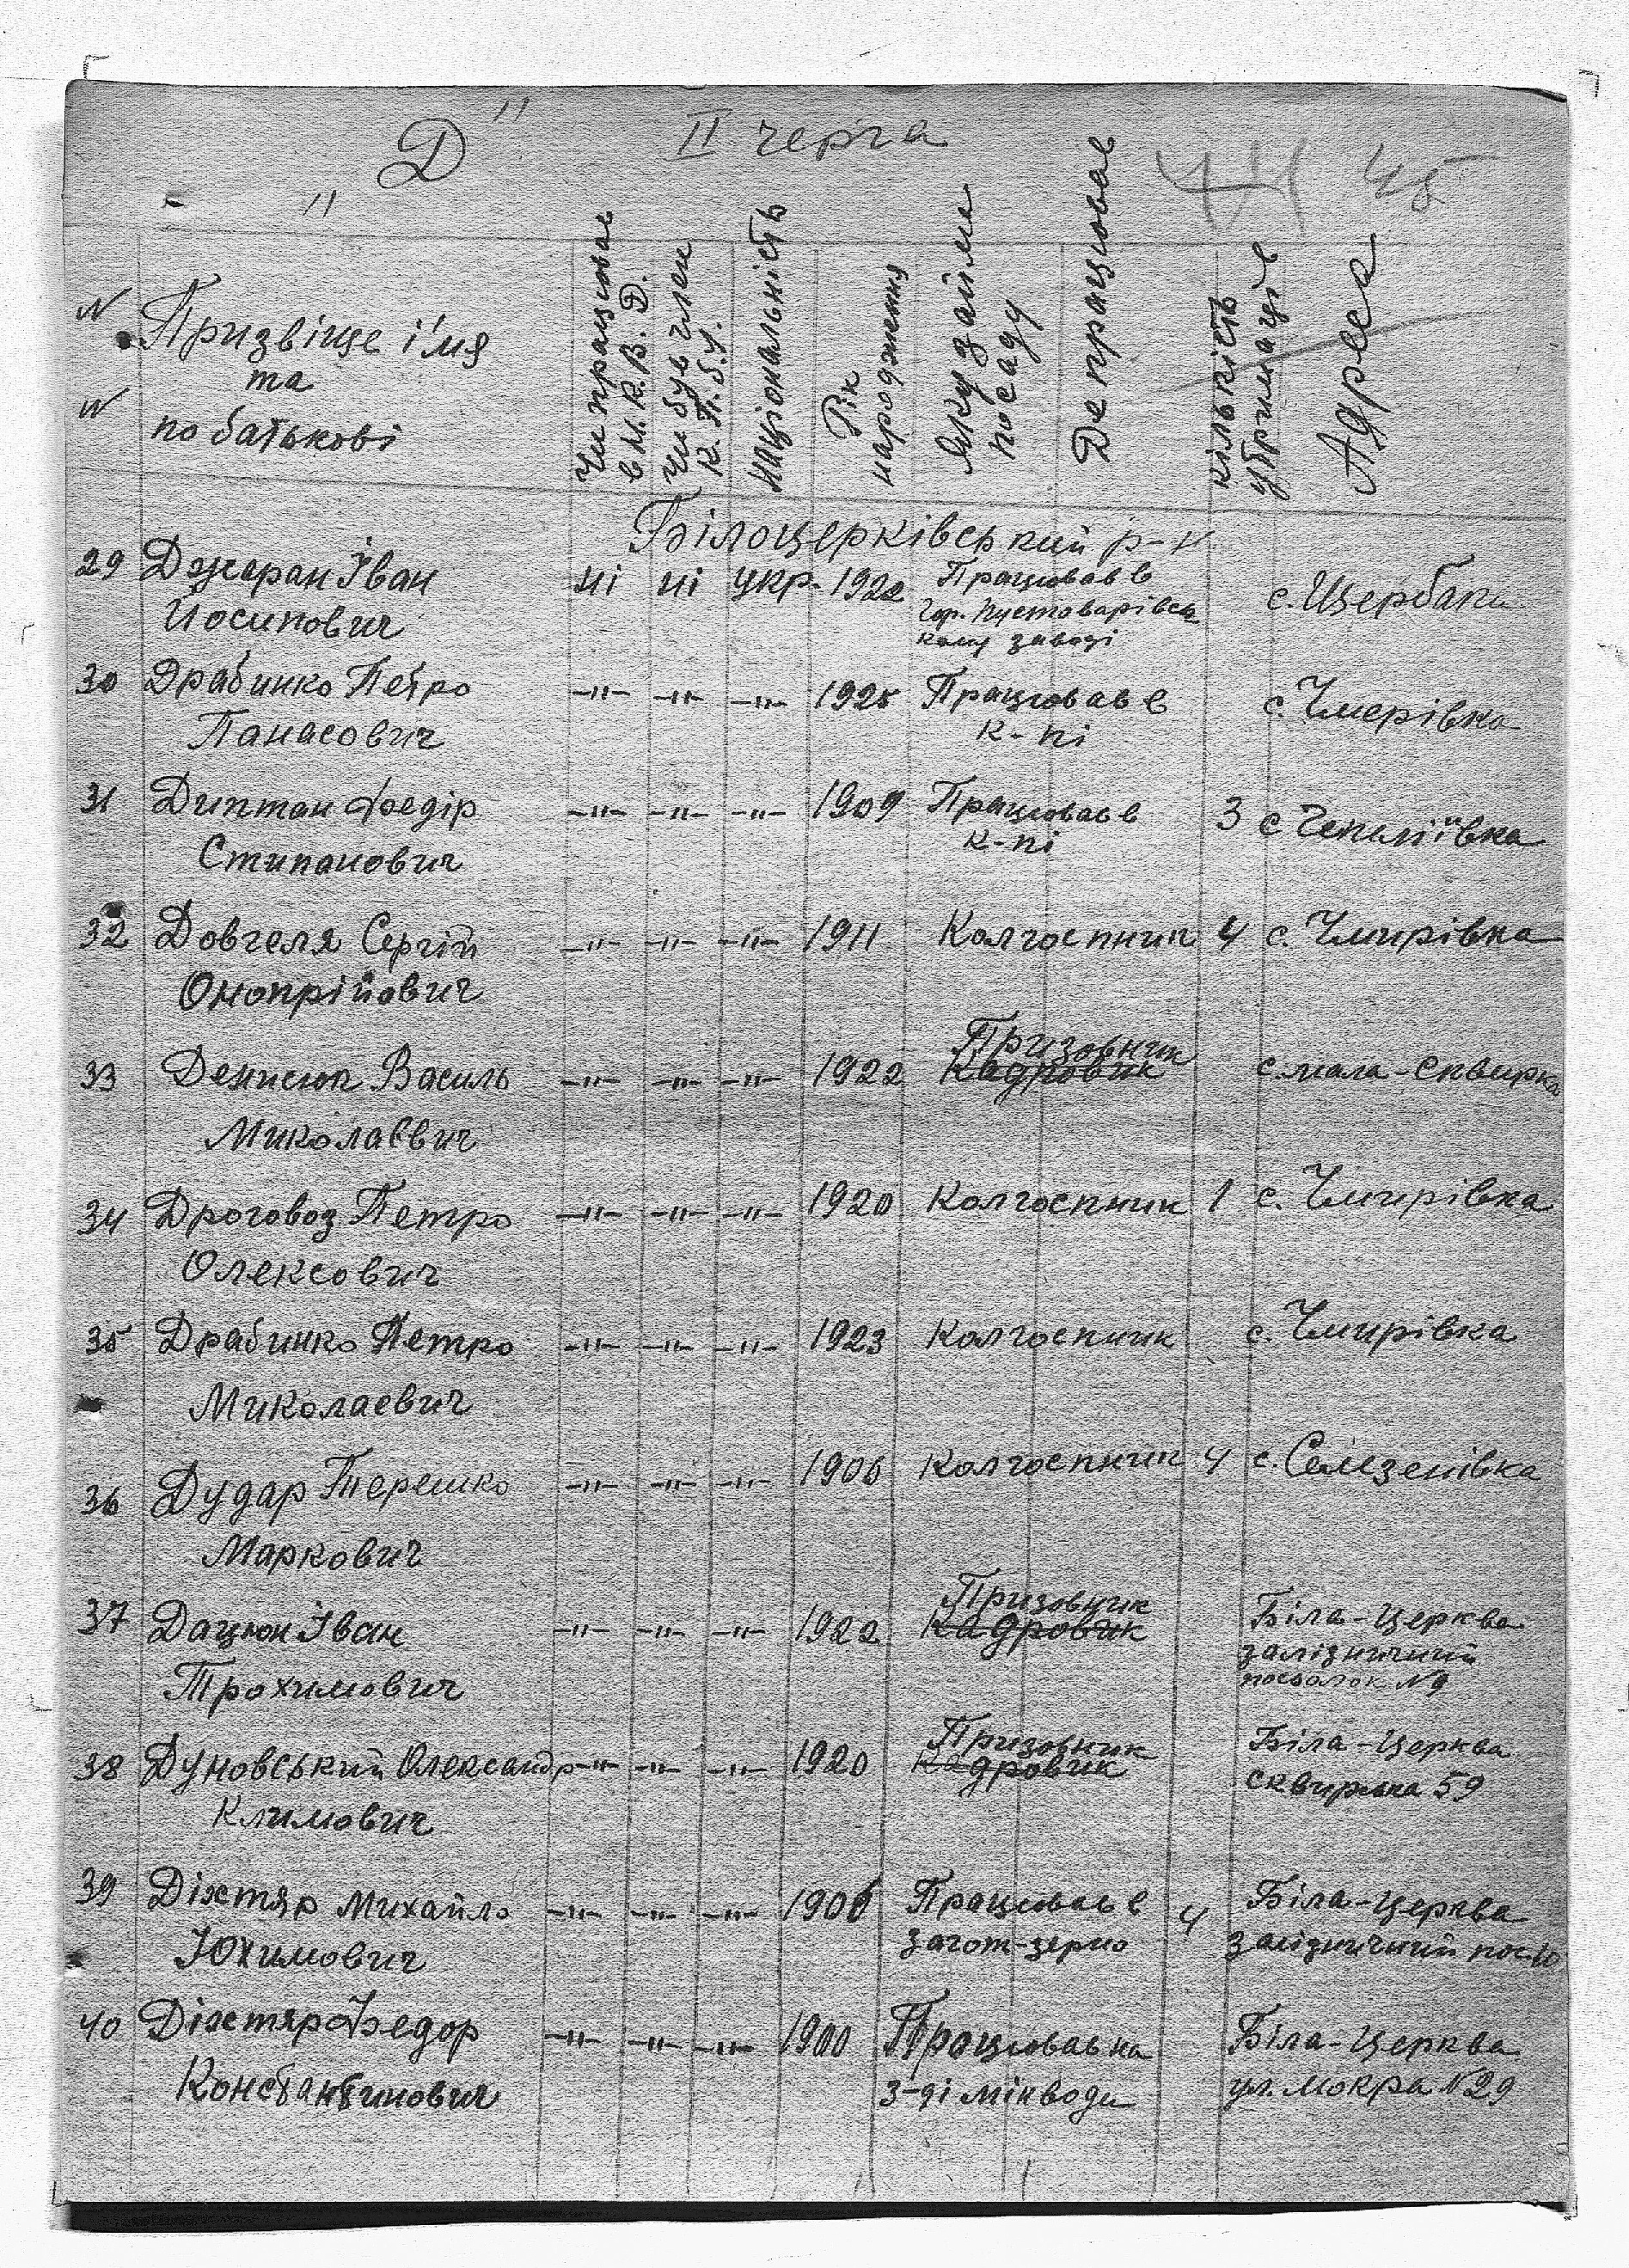 "Д" II черга
44 45
N N Призвіще і'мя та по батькові
Чи працював в М.К.В.Д.
Чи був член К.П.б.У.
Національність
Рік народження
Яку займа посаду
Де працював
кількість утриманців
Адреса
Білоцерківський р-н
29 Джеран Іван Йосипович ні ні укр. 1922 Працював в Гор. Пустоварівсь кому заводі с. Щербаки
30 Драбинко Петро Панасович -"- -"- -"- 1925 Працював в к-пі с. Чмерівка
31 Диптан Федір Стипанович -"- -"- -"- 1909 Працював в к-пі 3 с Чепиліївка
32 Довгеля Сергій Онопрійович -"- -"- -"- 1911 Колгоспник 4 с. Чмирівка
33 Денисюк Василь Миколаєвич -"- -"- -"- 1922 Призовник Кадровик с. мала-сквирка
34 Дроговоз Петро Олексович -"- -"- -"- 1920 Колгоспник 1 с. Чмирівка
35 Драбинко Петро Миколаевич -"- -"- -"- 1923 Колгоспник с. Чмирівка
36 Дудар Терешко Маркович -"- -"- -"- 1906 Колгоспник 4 с. Селезенівка
37 Дацюк Іван Трохимович -"- -"- -"- 1922 Призовник Кадровик Біла-Церква залізничний посьолок N9
38 Думовський Олександр Климович -"- -"- -"- 1920 Призовник Кадровик Біла-Церква сквирська 59
39 Діхтяр Михайло Юхимович -"- -"- -"- 1906 Працював в загот-зерно 4 Біла-Церква залізничний пос. 10
40 Діхтяр Федор Константинович -"- -"- -"- 1900 Працював на з-ді мінводи Біла-Церква ул. Мокра N29